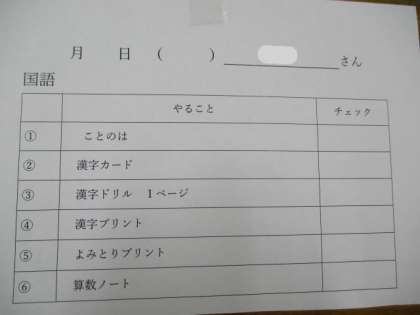 月　日（　　）　　　　さん
国語
やること　チェック
① ことのは
② 漢字カード
③ 漢字ドリル　１ページ
④ 漢字プリント
⑤ よみとりプリント
⑥ 算数ノート